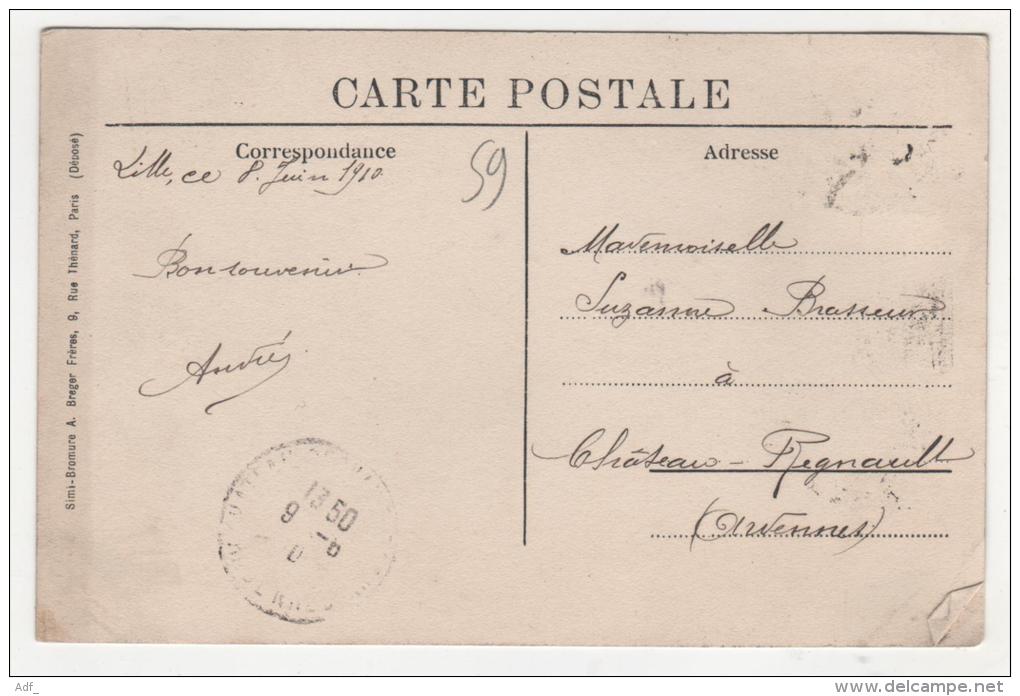 CARTE POSTALE
Correspondance
Lille, ce 8. Juin 1910
59
Bon souvenir
André
Simi-Bromure A. Breger Frères, 9, Rue Thénard, Paris (Déposé)
13 50
9 - 6
Adresse
Mademoiselle
Suzanne Brasseur
à
Château-Regnault
(Ardennes)
Adf_
www.delcampe.net